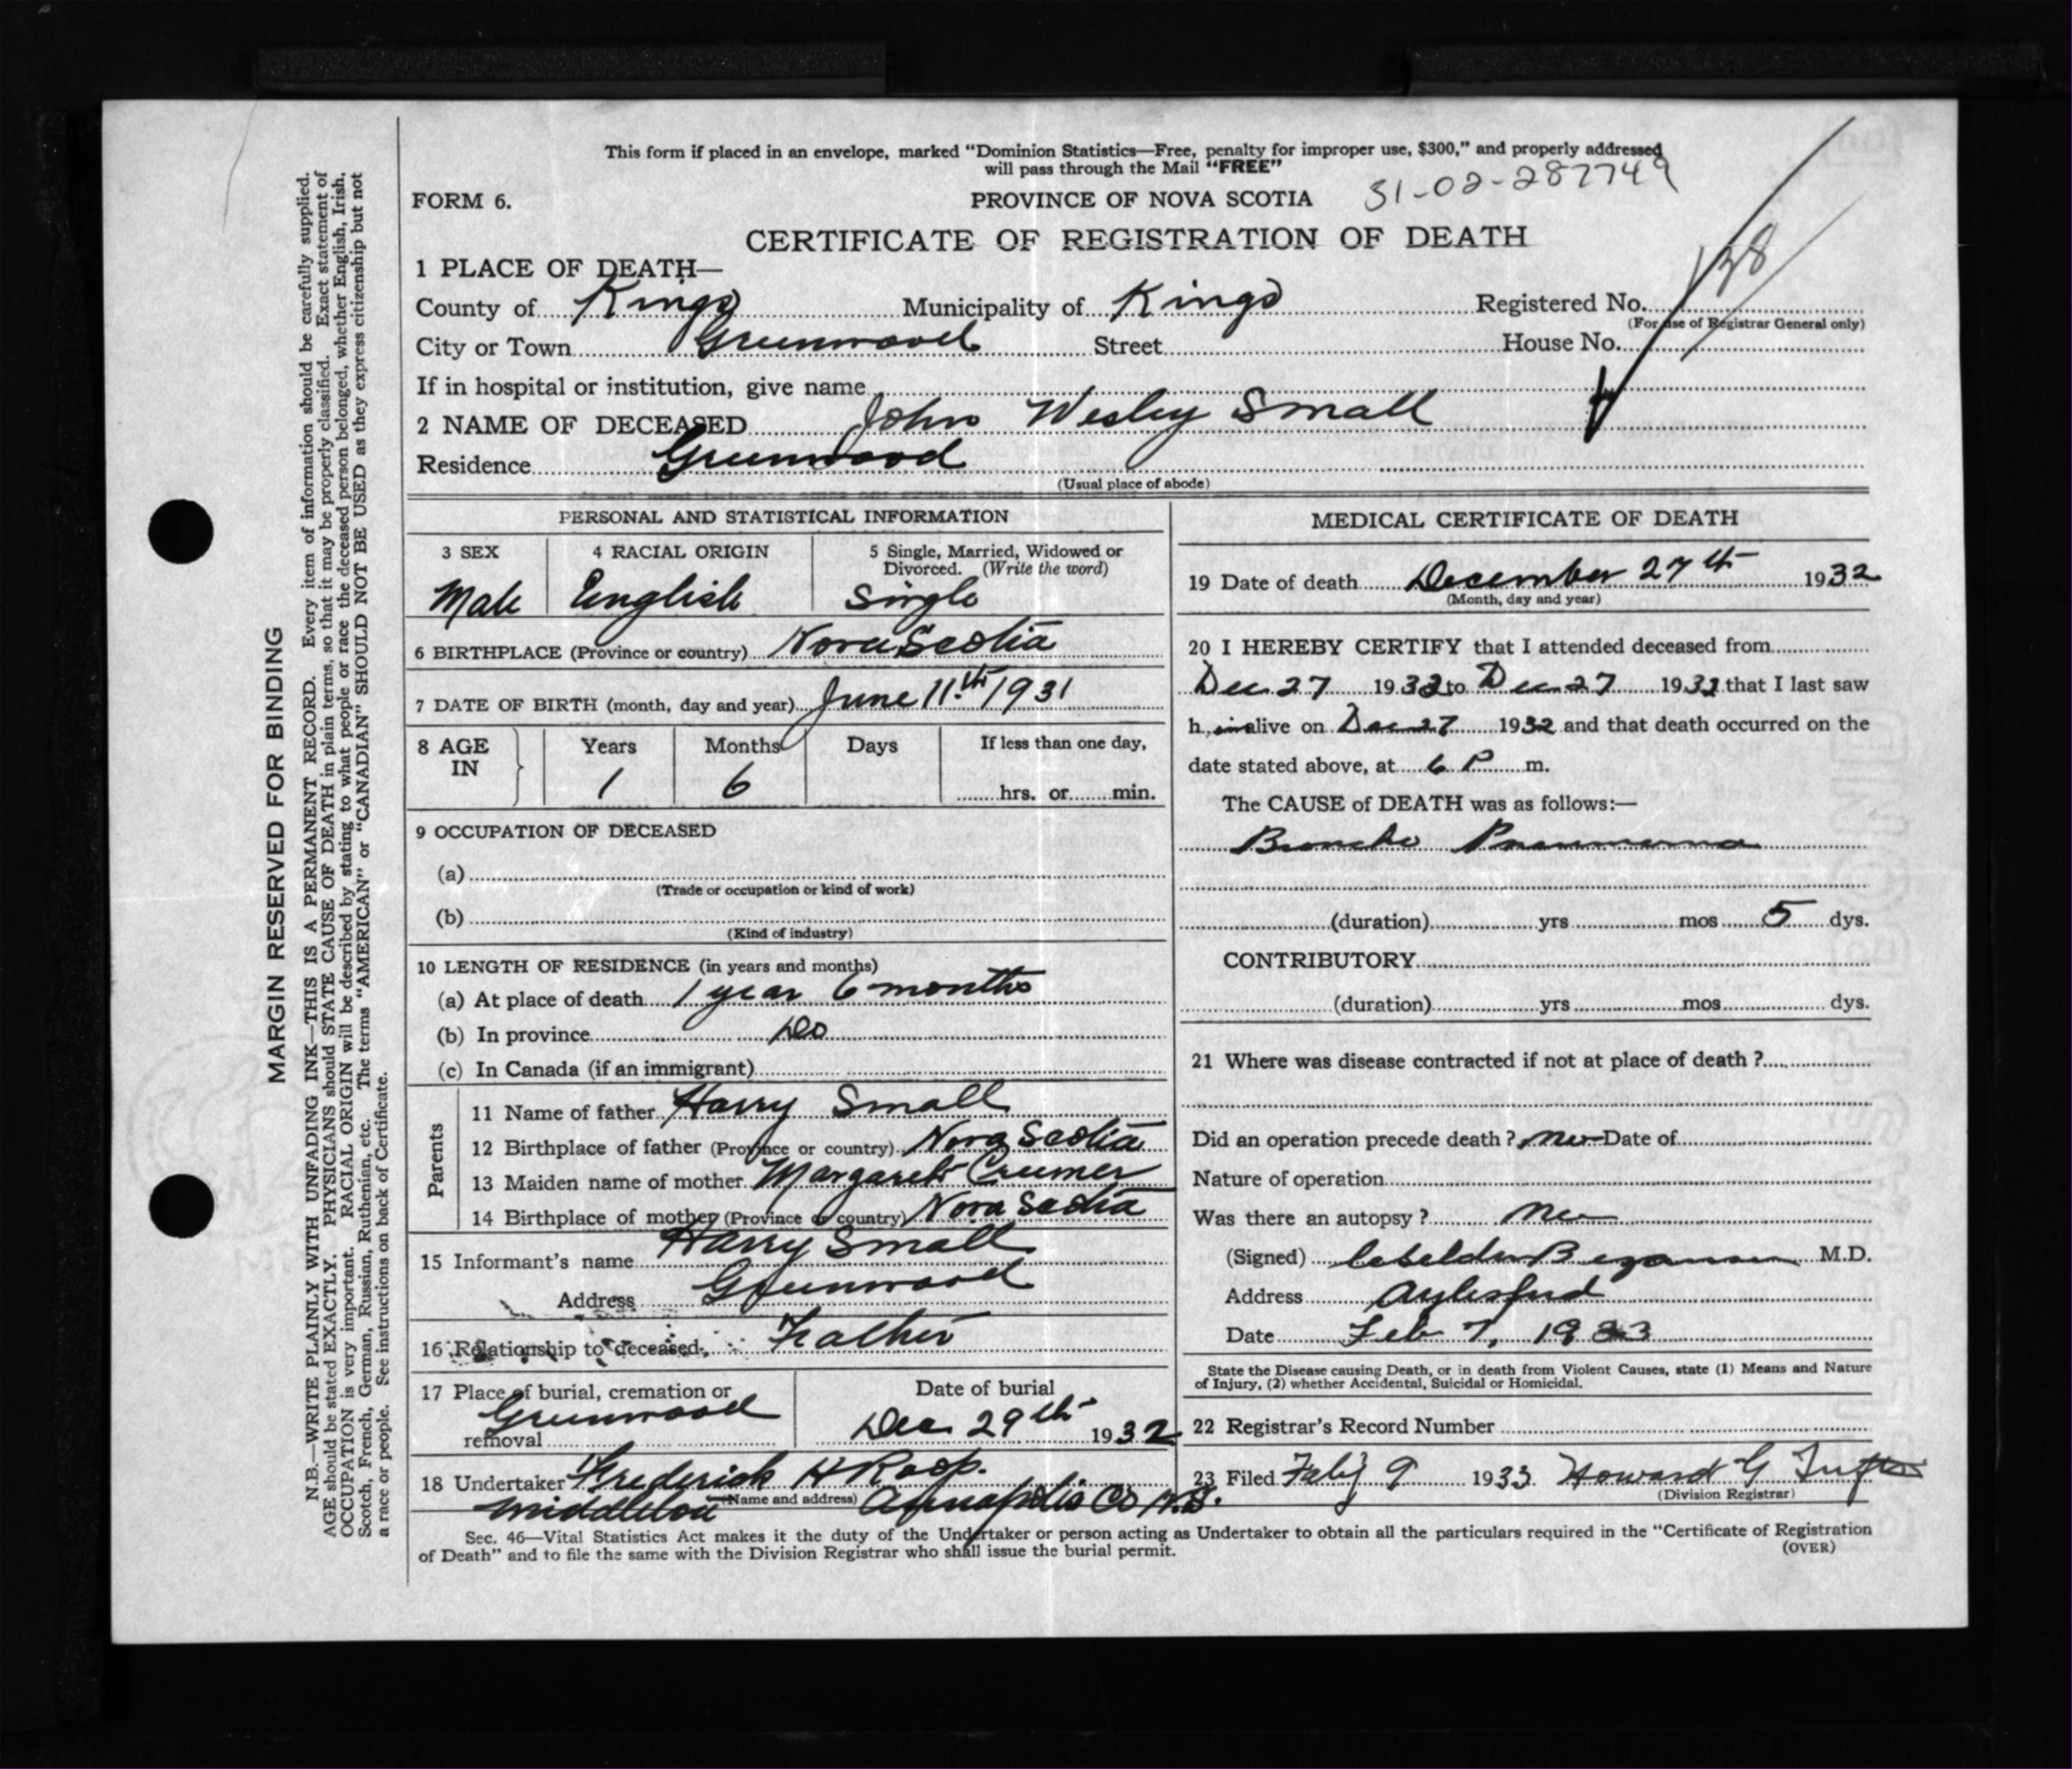 This form if placed in an envelope, marked “Dominion Statistics—Free, penalty for improper use, $300,” and properly addressed
will pass through the Mail “FREE”
31-02-287749
FORM 6.
PROVINCE OF NOVA SCOTIA
CERTIFICATE OF REGISTRATION OF DEATH
138
1 PLACE OF DEATH—
County of Kings Municipality of Kings Registered No.
(For use of Registrar General only)
City or Town Greenwood Street House No.
If in hospital or institution, give name
2 NAME OF DECEASED John Wesley Small
Residence Greenwood
(Usual place of abode)
PERSONAL AND STATISTICAL INFORMATION
3 SEX 4 RACIAL ORIGIN 5 Single, Married, Widowed or
Divorced. (Write the word)
Male English Single
6 BIRTHPLACE (Province or country) Nova Scotia
7 DATE OF BIRTH (month, day and year) June 11th 1931
8 AGE IN Years Months Days If less than one day,
1 6 hrs. or min.
9 OCCUPATION OF DECEASED
(a)
(Trade or occupation or kind of work)
(b)
(Kind of industry)
10 LENGTH OF RESIDENCE (in years and months)
(a) At place of death 1 year 6 months
(b) In province Do
(c) In Canada (if an immigrant)
Parents
11 Name of father Harry Small
12 Birthplace of father (Province or country) Nova Scotia
13 Maiden name of mother Margaret
14 Birthplace of mother (Province or country) Nova Scotia
15 Informant's name Harry Small
Address Greenwood
16 Relationship to deceased Father
17 Place of burial, cremation or Date of burial
Greenwood
removal Dec 29th 1932
18 Undertaker Frederick H Roop.
(Name and address)
Middleton Annapolis Co N.S.
MEDICAL CERTIFICATE OF DEATH
19 Date of death December 27th 1932
(Month, day and year)
20 I HEREBY CERTIFY that I attended deceased from
Dec 27 1932 to Dec 27 1932 that I last saw
h im alive on Dec 27 1932 and that death occurred on the
date stated above, at 6 P m.
The CAUSE of DEATH was as follows:—
Broncho Pneumonia
(duration) yrs mos 5 dys.
CONTRIBUTORY
(duration) yrs mos dys.
21 Where was disease contracted if not at place of death ?
Did an operation precede death ? no Date of
Nature of operation
Was there an autopsy ? no
(Signed) Bezanson M.D.
Address Aylesford
Date Feb 7, 1933
State the Disease causing Death, or in death from Violent Causes, state (1) Means and Nature
of Injury, (2) whether Accidental, Suicidal or Homicidal.
22 Registrar's Record Number
23 Filed Feby 9 1933 Howard G Tufts
(Division Registrar)
Sec. 46—Vital Statistics Act makes it the duty of the Undertaker or person acting as Undertaker to obtain all the particulars required in the “Certificate of Registration
of Death” and to file the same with the Division Registrar who shall issue the burial permit.
(OVER)
MARGIN RESERVED FOR BINDING
N.B.—WRITE PLAINLY WITH UNFADING INK—THIS IS A PERMANENT RECORD. Every item of information should be carefully supplied.
AGE should be stated EXACTLY. PHYSICIANS should STATE CAUSE OF DEATH in plain terms, so that it may be properly classified. Exact statement of
OCCUPATION is very important. RACIAL ORIGIN will be described by stating to what people or race the deceased person belonged, whether English, Irish,
Scotch, French, German, Russian, Ruthenian, etc. The terms “AMERICAN” or “CANADIAN” SHOULD NOT BE USED as they express citizenship but not
a race or people. See instructions on back of Certificate.